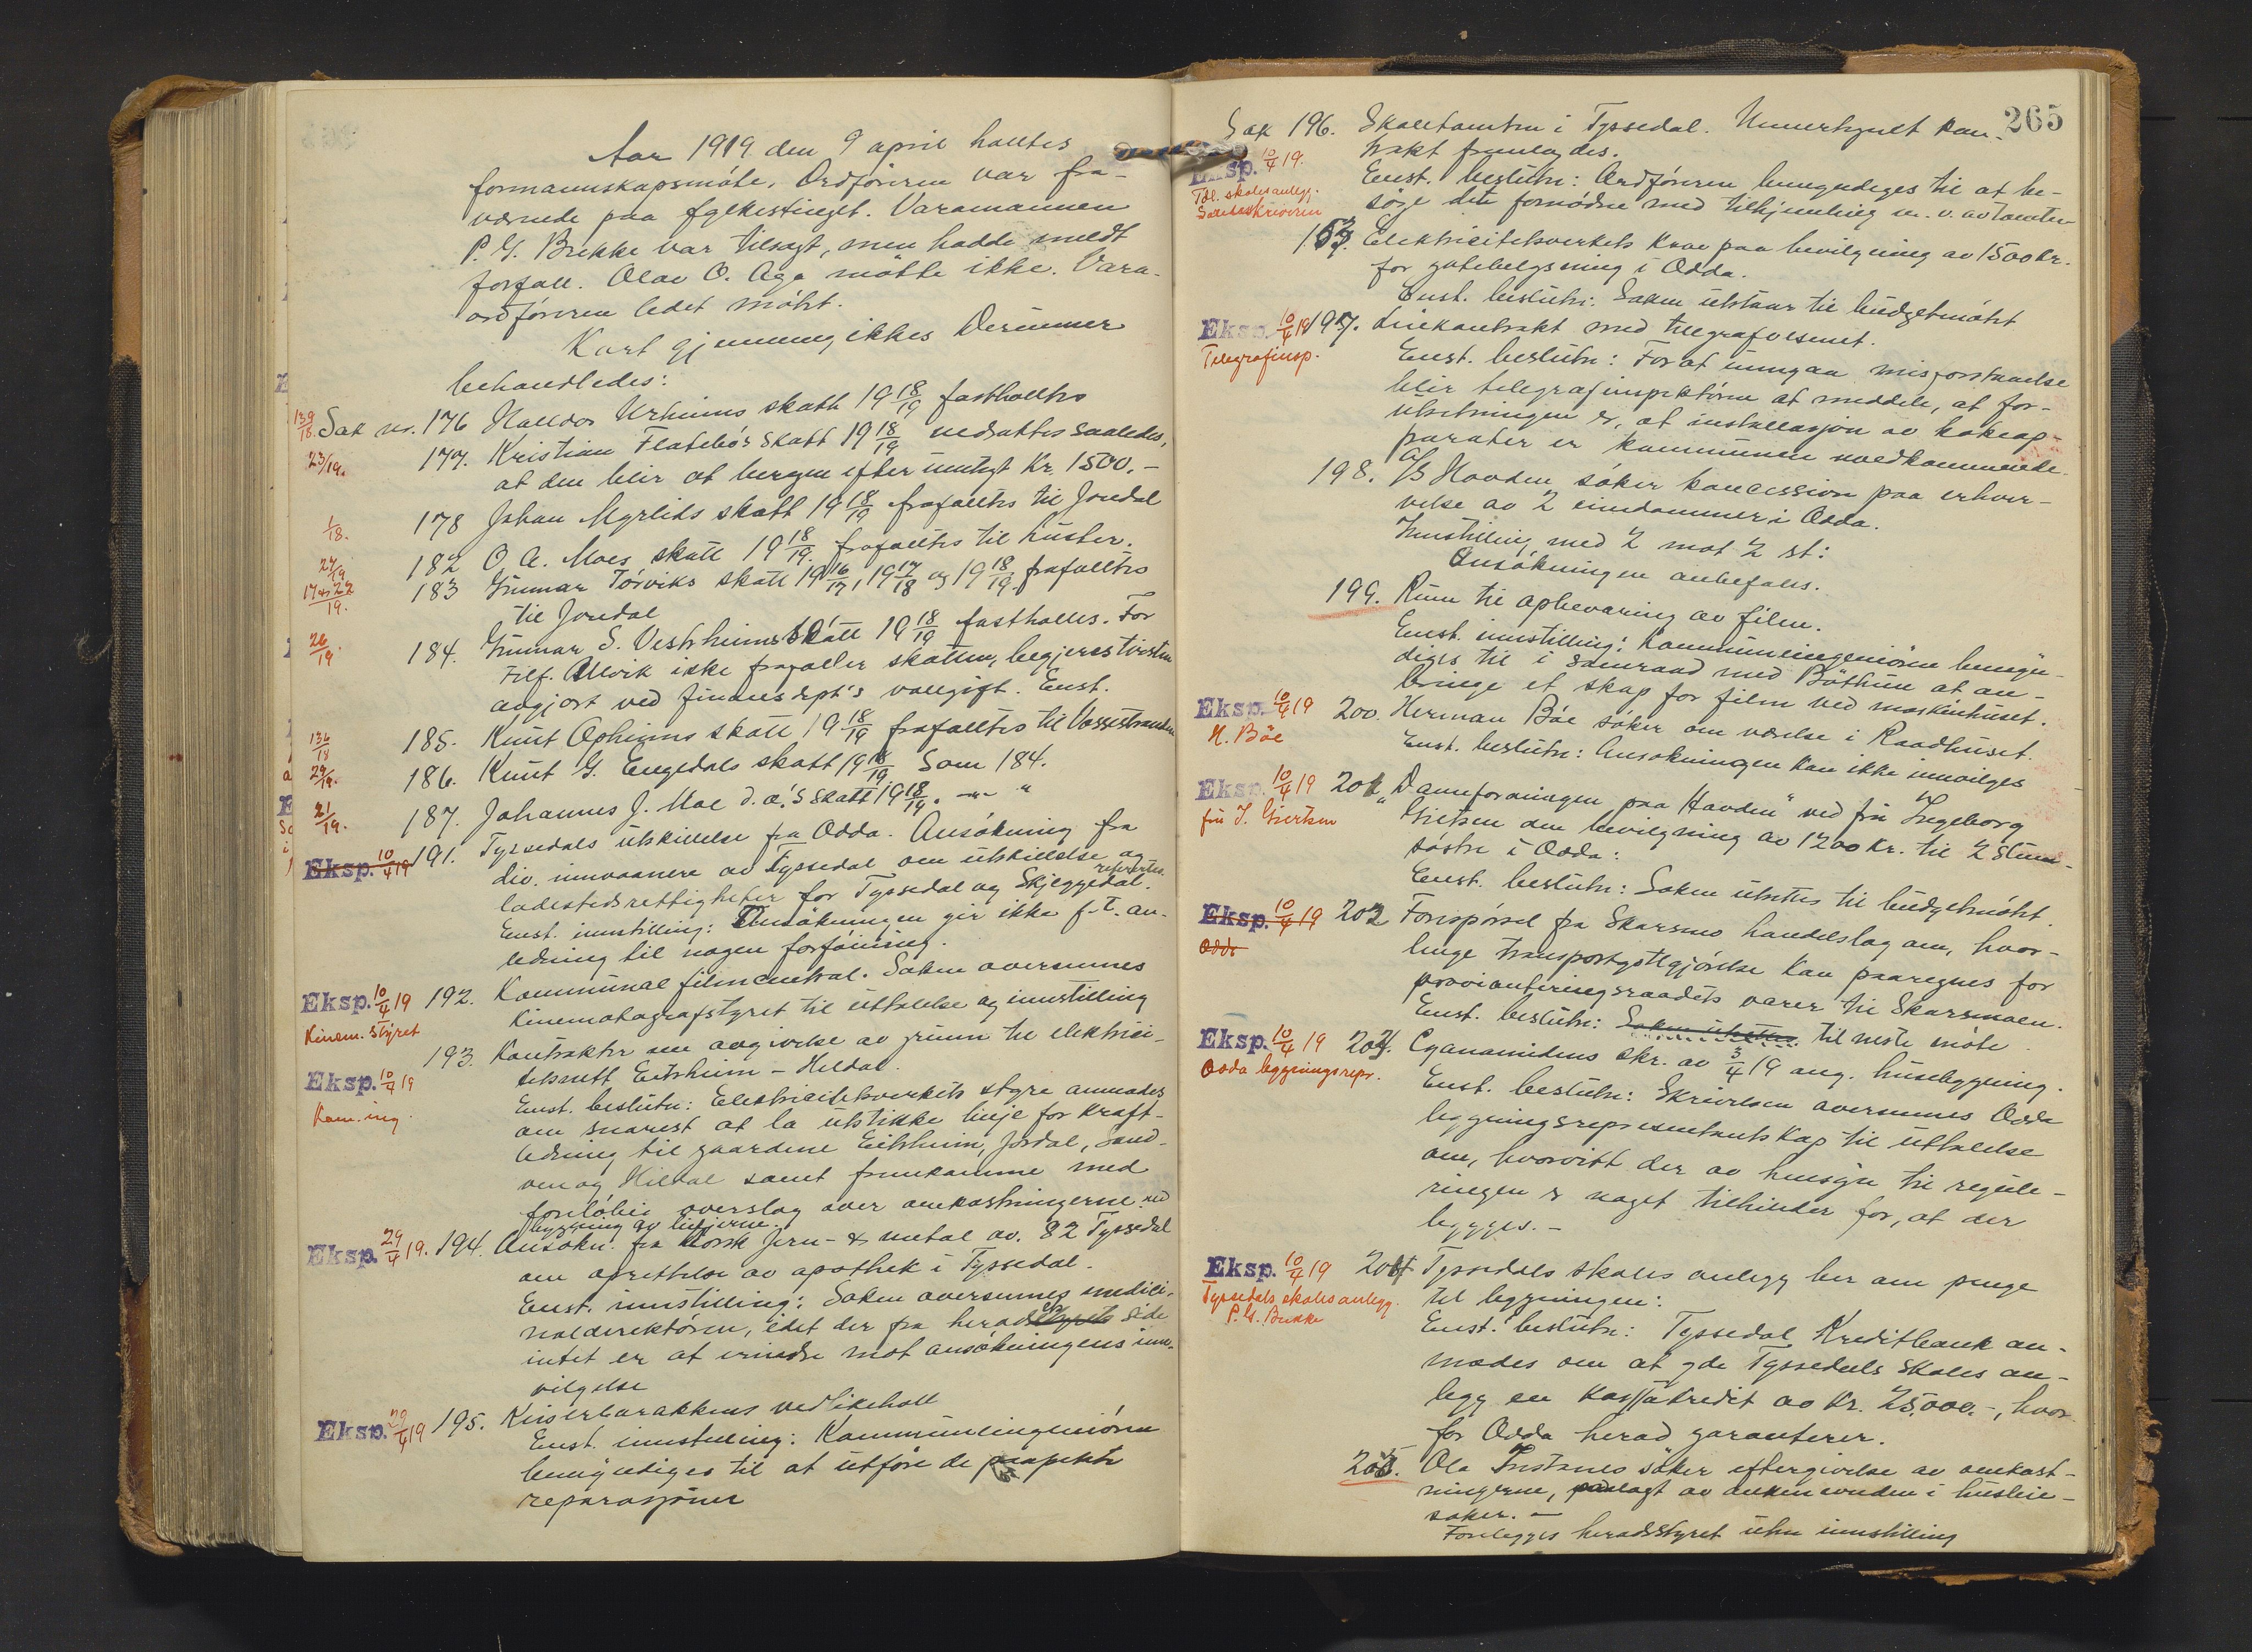 Aar 1919 den 9 april holltes
formannskapsmöte. Ordföreren var fra-
værende paa fylkestinget. Varamannen
P. G. Brekke var tilsagt, men hadde meldt
forfall. Olav O. Aga mötte ikke. Vara-
ordföreren ledet mötet.
Kart gjennemgikkes Derunner
behandledes:
139/18. Sak nr. 176 Halldor Urheims skatt 19 18/19 fastholltes
23/19. 177. Kristian Flatebös skatt 19 18/19 nedsattes saaledes,
at den blir at beregne efter inntegt Kr. 1500.-
1/18. 178 Johan Myrlids skatt 19 18/19 frafalltes til Jondal
27/19 182 O. A. Moes skatt 19 18/19. frafalltes til Luster.
17 + 22/19. 183 Gunnar Törviks skatt 19 16/17, 19 17/18 og 19 18/19 frafalltes
til Jondal
26/19. 184. Gunnar S. Vestrheims skatt 19 18/19 fastholles. For
tilf. Ulvik ikke frafaller skatten, begjeres tvisten
avgjort ved finansdept's vollgift. Enst.
136/18 185. Knut Opheims skatt 19 18/19 frafalltes til Vossestranden
29/19. 186. Knut G. Engedals skatt 19 18/19 Som 184.
21/19. 187. Johannes J. Moe d. æ.'s skatt 19 18/19. -"- "
Eksp. 10/4 19 191. Tyssedals utskillelse fra Odda. Ansökning fra
div. innvaanere av Tyssedal om utskillelse og
refertes.
ladestedsrettigheter for Tyssedal og Skjeggedal.
Enst. innstilling: Ansökningen gir ikke f. T. an-
ledning til nogen forföining.
Eksp. 10/4 19 192. Kommunal filmcentral. Saken oversennes
Kinem. styret
Kinematografstyret til uttalelse og innstilling
193. Kontrakter om avgivelse av grunn til elektrici-
tetsnett Eitrheim - Hildal.
Eksp. 10/4 19
Kom. ing.
Enst. beslutn: Elektricitetsverkets styre anmodes
om snarest at la utstikke linje for kraft-
ledning til gaardene Eitrheim, Jordal, Sand-
ven og Hildal samt fremkomme med
forelöbig overslag over omkostningerne ved
bygging av linjerne.
Eksp. 29/4 19. 194. Ansökn. fra Norsk Jern- & metal av. 82 Tyssedal
om oprettelse av apothek i Tyssedal.
Enst. innstilling: Saken oversennes medici-
naldirektören, idet der fra herads side
intet er at innvende mot ansökningens inn-
vilgelse
Eksp. 29/4 19 195. Kiserbarakkens vedlikeholl
Enst. innstilling: Kommuneingeniören
bemyndiges til at utföre de paapekte
reparasjoner
265
Sak 196. Skoletomten i Tyssedal. Unnertegnet kon-
Eksp. 10/4 19.
Tdl. skolesanlegg.
Sorenskriveren
trakt fremlagdes.
Enst. beslutn: Ordföreren bemyndiges til at be-
söge det fornödne med tilskjönning m. v. av tomten
153. Elektricitetsverkets krav paa bevilgning av 1500 kr.
for gatebelysning i Odda.
Enst. beslutn: Saken utstaar til budgetmötet
Eksp. 10/4 19 197. Leiekontrakt med telegrafvesenet.
Telegrafinsp.
Enst. beslutn: For at unngaa misforstaaelse
blir telegrafinspektören at meddele, at for-
utsetningen er, at installasjon av kokeap-
parater er kommunen uvedkommende.
198. A/S Hovden söker koncession paa erhver-
velse av 2 eiendommer i Odda.
Innstilling med 2 mot 2 st:
Ansökningen anbefales.
199. Rum til opbevaring av film.
Enst. innstilling: Kommuneingeniören bemyn-
diges til i samraad med Böthun at an-
bringe et skap for film ved maskinhuset.
Eksp. 10/4 19 200. Herman Böe söker om værelse i Raadhuset.
H. Böe
Enst. beslutn: Ansökningen kan ikke innvilges
Eksp. 10/4 19 201. "Vanneforeningen paa Hovden" ved fru Ingeborg
fru I. Giertsen
Giertsen om bevilgning av 1200 Kr. til 2
söstre i Odda:
Enst. beslutn: Saken utsettes til budgetmötet.
Eksp. 10/4 19 202 Forespörsel fra Skarsmo handelslag om, hvor-
Odda
lenge transportgodtgjörelse kan paaregnes for
provianteringsraadets varer til Skarsmoen.
Enst. beslutn: Saken utsettes til neste möte
Eksp. 10/4 19 203. Cyanamidens skr. av 3/4 19 ang. husebygning.
Odda bygningsrepr.
Enst. beslutn: Skrivelsen oversennes Odda
bygningsrepresentantskap til uttalelse
om, hvorvitt der av hensyn til regule-
ringen er noget tilhinder for, at der
bygges.-
Eksp. 10/4 19 204 Tyssedals skoles anlegg ber om penge
Tyssedals skoles anlegg.
P. G. Brekke
til bygningen:
Enst. beslutn: Tyssedal Kreditbank an-
modes om at yde Tyssedals skoles an-
legg en kassakredit av Kr. 25,000.-, hvor
for Odda herad garanterer.
205. Ole Instanes söker eftergivelse av omkost-
ningerne, paalagt av ankenemnden i husleie-
saker.-
Forelegges heradsstyret uten innstilling